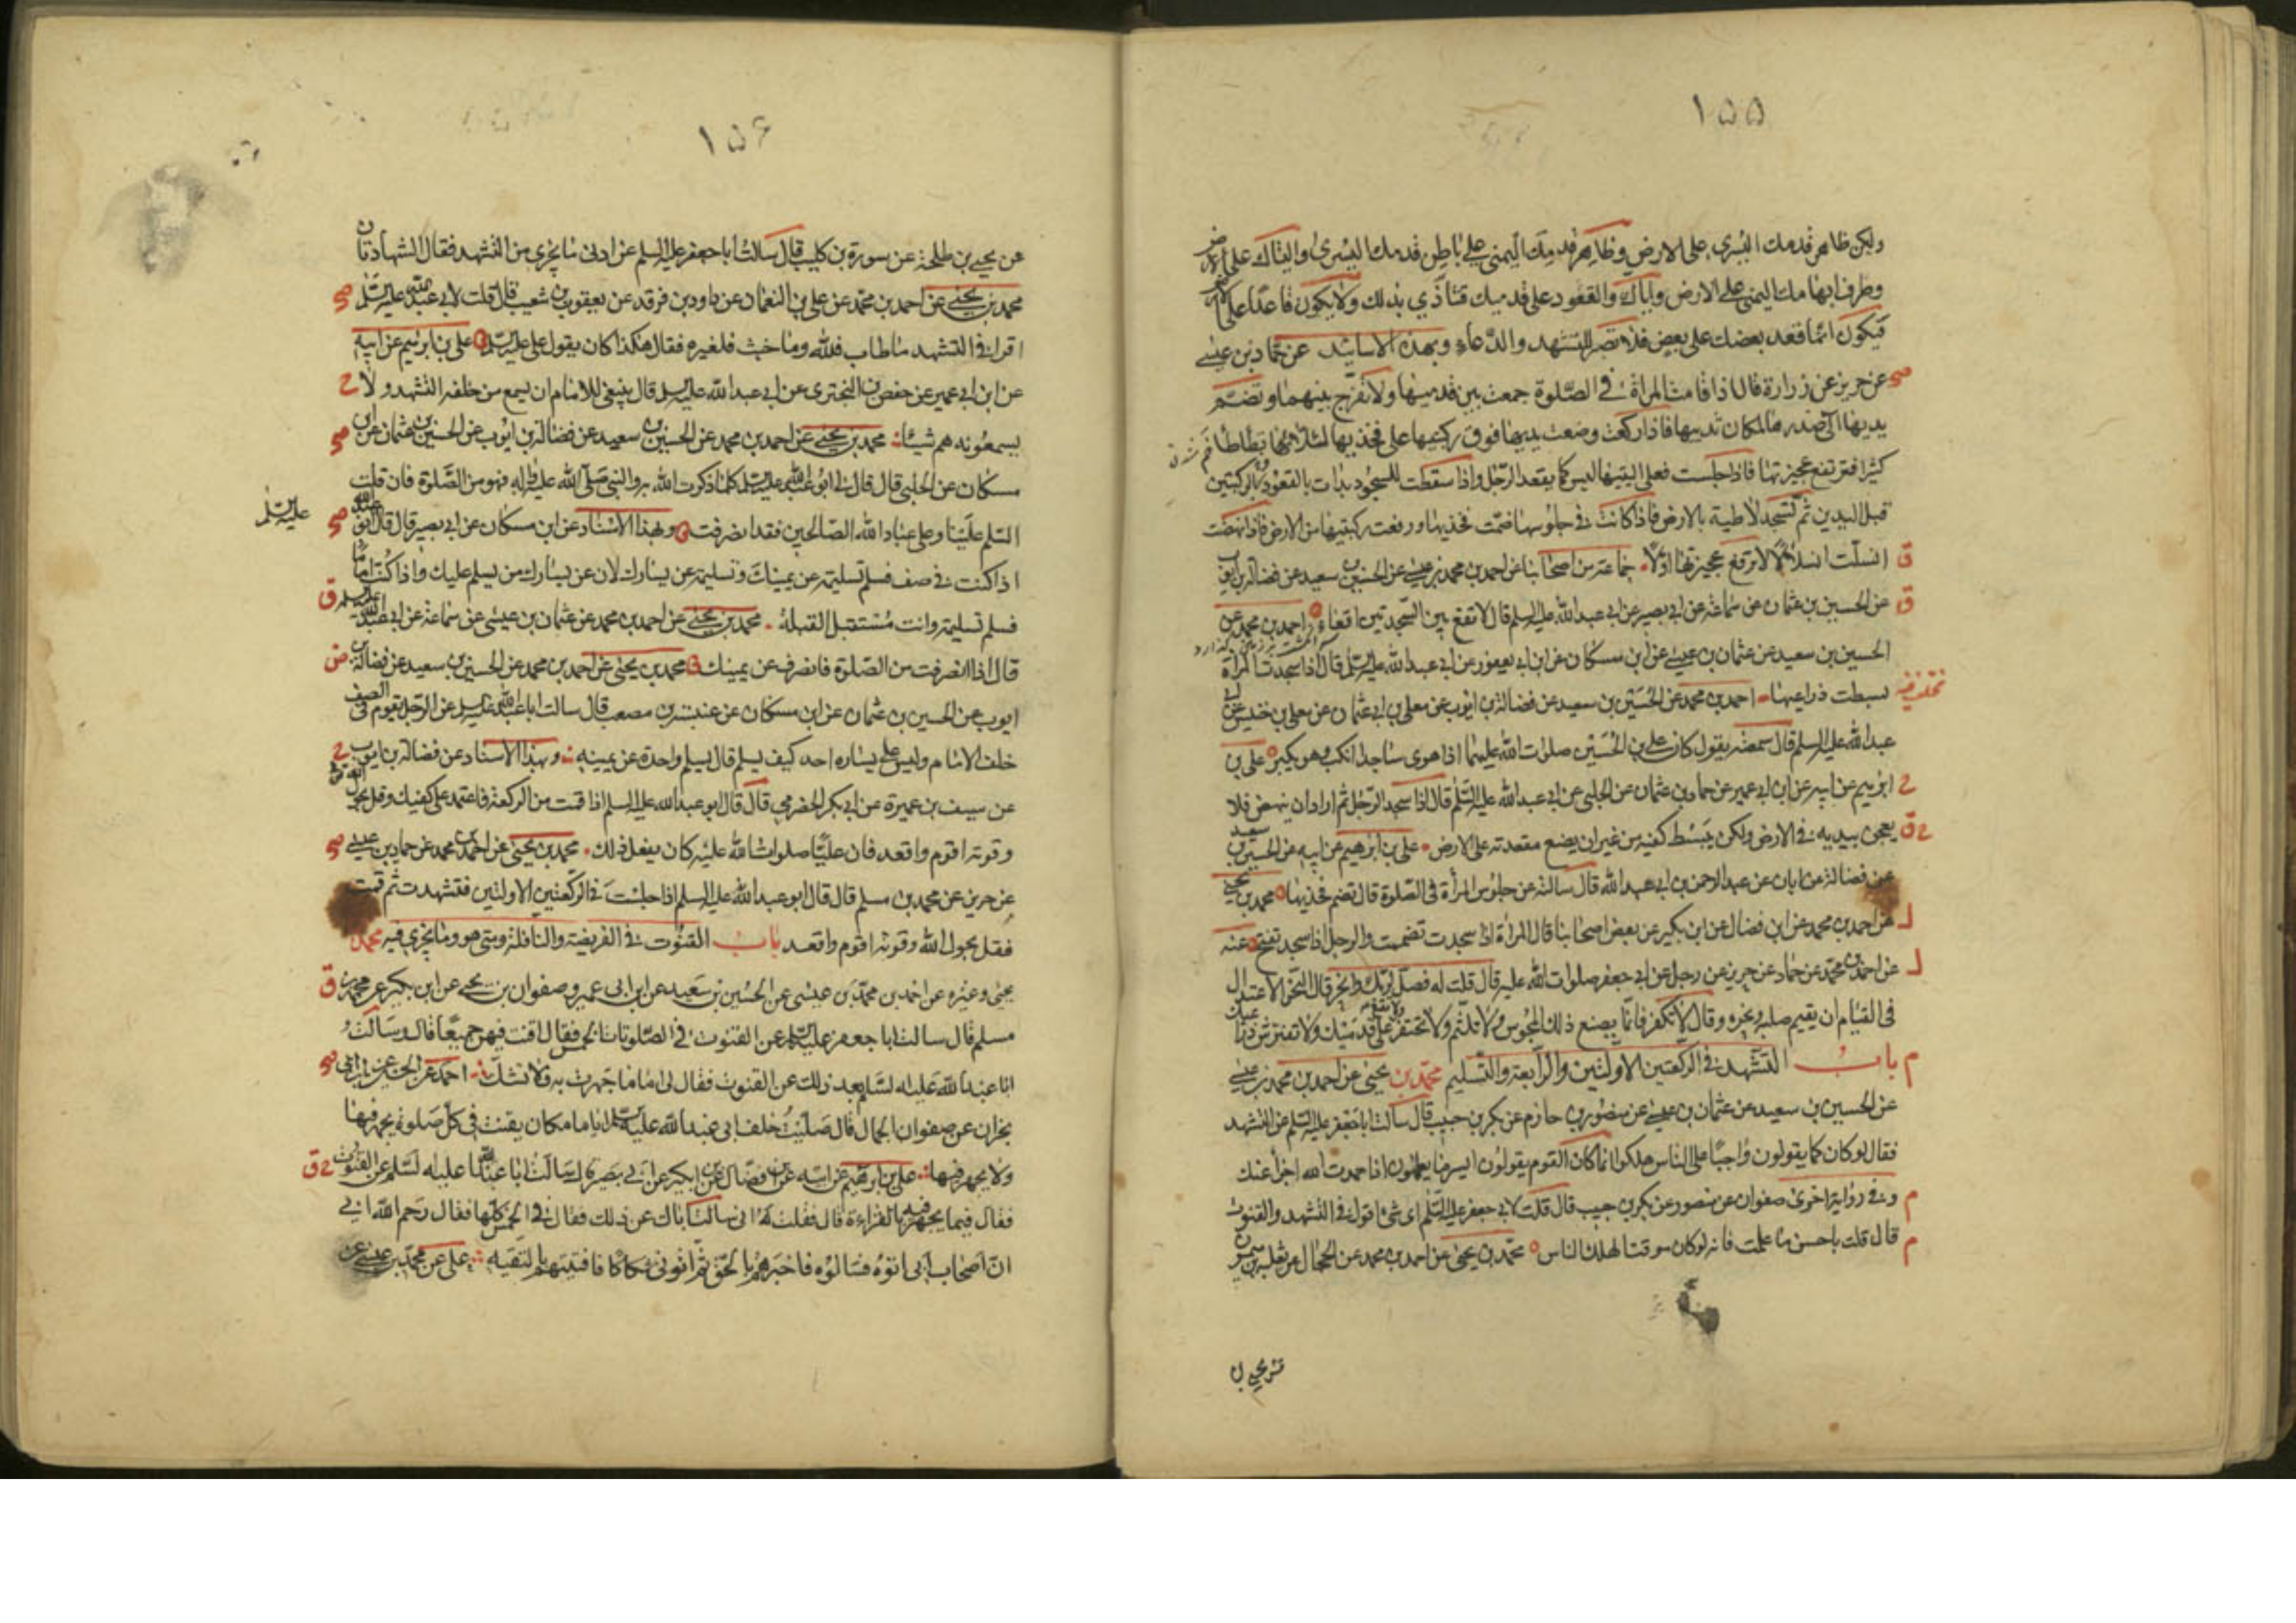 ١٥٥
ولكن ظاهر قدمك اليسرى على الارض وظاهر قدمك اليمنى على باطن قدمك اليسرى والیتاك على الارض
وطرف ابهامك اليمنى على الارض واياك والقعود على قدميك فتتاذى بذلك ولا يكون قاعدا على الارض
فيكون انما قعد بعضك على بعض فلا تصبر للتشهد والدعاء وبهذه الاسانيد عن حماد بن عيسى
صح عن حريز عن زرارة قال اذا قامت المراة في الصلوة جمعت بين قدميها ولا تفرج بينهما وتضم
يديها الى صدرها لمكان ثدييها فاذا ركعت وضعت يديها فوق ركبتيها على فخذيها لئلا تطاطا
كثيرا فترتفع عجيزتها فاذا جلست فعلى اليتيها ليس كما يقعد الرجل واذا سقطت للسجود بدات بالقعود وبالركبتين
قبل اليدين ثم تسجد لاطية بالارض فاذا كانت في جلوسها ضمت فخذيها ورفعت ركبتيها من الارض فاذا نهضت
ق انسلت انسلالا لا ترفع عجيزتها اولا جماعة من اصحابنا عن احمد بن محمد بن عيسى عن الحسين بن سعيد عن فضالة بن ايوب
ق عن الحسين بن عثمان عن سماعة عن ابي بصير عن ابي عبد الله عليه السلم قال لا تقع بين السجدتين اقعاء احمد بن محمد عن
الحسين بن سعيد عن عثمان بن عيسى عن ابن مسكان عن ابن ابي يعفور عن ابي عبد الله عليه السلم قال اذا سجدت المراة
بسطت ذراعيها احمد بن محمد عن الحسين بن سعيد عن فضالة بن ايوب عن معلى بن ابي عثمان عن معلى بن خنيس عن ابي
عبد الله عليه السلم قال سمعته يقول كان على بن الحسين صلوات الله عليهما اذا هوى ساجدا انكب وهو يكبر على بن
ح ابرهيم عن ابيه عن ابن ابي عمير عن حماد بن عثمان عن الحلبي عن ابي عبد الله عليه السلم قال اذا سجد الرجل ثم اراد ان ينهض فلا
ح ق يعجن بيديه في الارض ولكن يبسط كفيه من غير ان يضع مقعدته على الارض على بن ابرهيم عن ابيه عن الحسين بن سعيد
عن فضالة عن ابان عن عبد الرحمن بن ابي عبد الله قال سالته عن جلوس المراة في الصلوة قال تضم فخذيها محمد بن يحيى
ل عن احمد بن محمد عن ابن فضال عن ابن بكير عن بعض اصحابنا قال المراة اذا سجدت تضممت والرجل اذا سجد تفتح عنه
ل عن احمد بن محمد عن حماد عن حريز عن رجل عن ابي جعفر صلوات الله عليه قال قلت له فصل لربك وانحر قال النحر الاعتدال
في القيام ان يقيم صلبه ونحره وقال لا تكفر فانما يصنع ذلك المجوس ولا تلثم ولا تحتفز ولا تقع على قدميك ولا تفترش ذراعيك
م باب التشهد في الركعتين الاولتين والرابعة والتسليم محمد بن يحيى عن احمد بن محمد بن عيسى
عن الحسين بن سعيد عن عثمان بن عيسى عن منصور بن حازم عن بكر بن حبيب قال سالت ابا جعفر عليه السلم عن التشهد
فقال لو كان كما يقولون واجبا على الناس هلكوا انما كان القوم يقولون ايسر ما يعلمون اذا حمدت الله اجزا عنك
م وفي رواية اخرى صفوان عن منصور عن بكر بن حبيب قال قلت لابي جعفر عليه السلم اى شئ اقول في التشهد والقنوت
م قال قلت باحسن ما علمت فانه لو كان موقتا لهلك الناس محمد بن يحيى عن احمد بن محمد عن الحجال عن ثعلبة بن ميمون
عن يحيى بن
١٥٦
عن يحيى بن طلحة عن سورة بن كليب قال سالت ابا جعفر عليه السلم عن ادنى ما يجزى من التشهد فقال الشهادتان
محمد بن يحيى عن احمد بن محمد عن على بن النعمان عن داود بن فرقد عن يعقوب بن شعيب قال قلت لابي عبد الله عليه السلم صح
اقرا في التشهد ما طاب فلله وما خبث فلغيره فقال هكذا كان يقول على عليه السلم على بن ابرهيم عن ابيه
عن ابن ابي عمير عن حفص بن البختري عن ابي عبد الله عليه السلم قال ينبغى للامام ان يسمع من خلفه التشهد ولا ح
يسمعونه هم شيئا محمد بن يحيى عن احمد بن محمد عن الحسين بن سعيد عن فضالة بن ايوب عن الحسين بن عثمان عن ابن صح
مسكان عن الحلبي قال قال لي ابو عبد الله عليه السلم كلما ذكرت الله به والنبى صلى الله عليه واله فهو من الصلوة فان قلت
السلم علينا وعلى عباد الله الصالحين فقد انصرفت وبهذا الاسناد عن ابن مسكان عن ابي بصير قال قال ابو عبد الله صح عليه السلم
اذا كنت في صف فسلم تسليمة عن يمينك وتسليمة عن يسارك لان عن يسارك من يسلم عليك واذا كنت اماما
فسلم تسليمة وانت مستقبل القبلة محمد بن يحيى عن احمد بن محمد عن عثمان بن عيسى عن سماعة عن ابي عبد الله عليه السلم ق
قال اذا انصرفت من الصلوة فانصرف عن يمينك محمد بن يحيى عن احمد بن محمد عن الحسين بن سعيد عن فضالة بن ض
ايوب عن الحسين بن عثمان عن ابن مسكان عن عنبسة بن مصعب قال سالت ابا عبد الله عليه السلم عن الرجل يقوم في الصف
خلف الامام وليس على يساره احد كيف يسلم قال يسلم واحدة عن يمينه وبهذا الاسناد عن فضالة بن ايوب ح
عن سيف بن عميرة عن ابي بكر الحضرمي قال قال ابو عبد الله عليه السلم اذا قمت من الركعة فاعتمد على كفيك وقل بحول الله
وقوته اقوم واقعد فان عليا صلوات الله عليه كان يفعل ذلك محمد بن يحيى عن احمد بن محمد عن حماد بن عيسى صح
عن حريز عن محمد بن مسلم قال قال ابو عبد الله عليه السلم اذا جلست في الركعتين الاولتين فتشهدت ثم قمت
فقل بحول الله وقوته اقوم واقعد باب القنوت في الفريضة والنافلة ومتى هو وما يجزى فيه محمد بن
يحيى وغيره عن احمد بن محمد بن عيسى عن الحسين بن سعيد عن ابن ابي عمير وصفوان بن يحيى عن ابن بكير عن محمد بن ق
مسلم قال سالت ابا جعفر عليه السلم عن القنوت في الصلوات الخمس فقال اقنت فيهن جميعا قال وسالت
ابا عبد الله عليه السلم بعد ذلك عن القنوت فقال لى اما ما جهرت به فلا تشك احمد عن الحسين عن ابن ابي صح
نجران عن صفوان الجمال قال صليت خلف ابي عبد الله عليه السلم اياما فكان يقنت في كل صلوة يجهر فيها
ولا يجهر فيها على بن ابرهيم عن ابيه عن ابن فضال عن ابن بكير عن ابي بصير قال سالت ابا عبد الله عليه السلم عن القنوت ح ق
فقال فيما يجهر فيه بالقراءة قال فقلت له انى سالت اباك عن ذلك فقال في الخمس كلها فقال رحم الله ابي
ان اصحاب ابي اتوه فسالوه فاخبرهم بالحق ثم اتوني شكاكا فافتيتهم بالتقية على عن محمد بن عيسى عن